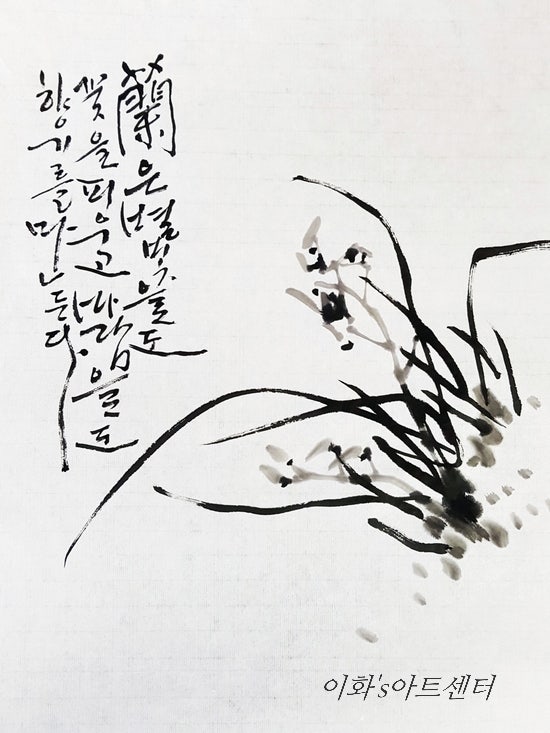 蘭은 별빛을 도
꽃을 피우고 바람을 도
향기를 만든다
이화's아트센터